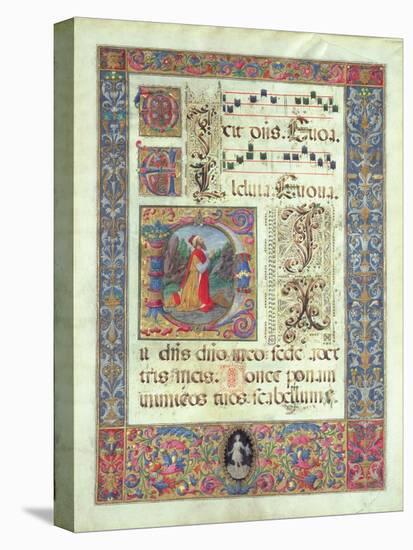 DIxit dñs. Euoua.
ALleluia. Euouа.
DIX
it dñs dño meo sede a dex
tris meis. Donec ponam
inimicos tuos scabellum